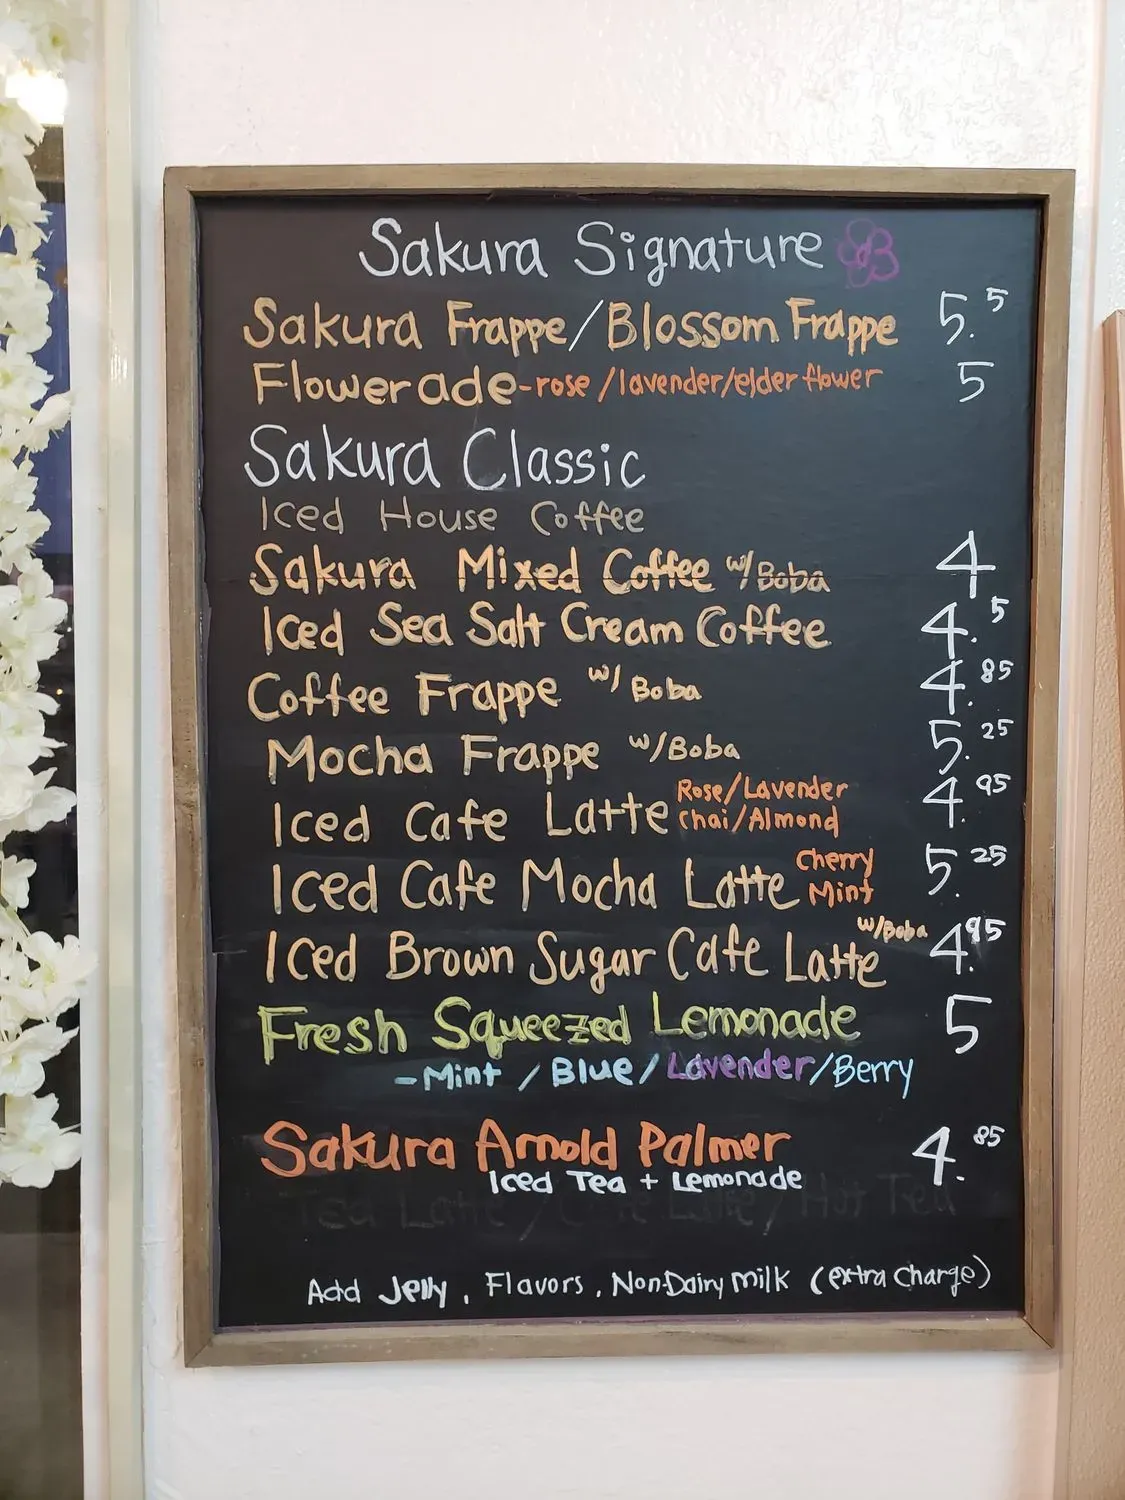 Sakura Signature
Sakura Frappe/Blossom Frappe 5.5
Flowerade-rose/lavender/elderflower 5
Sakura Classic
Iced House Coffee
Sakura Mixed Coffee w/Boba 4
Iced Sea Salt Cream Coffee 4.5
Coffee Frappe w/ Boba 4.85
Mocha Frappe w/Boba 5.25
Iced Cafe Latte Rose/Lavender Chai/Almond 4.95
Iced Cafe Mocha Latte Cherry Mint 5.25
Iced Brown Sugar Cafe Latte w/Boba 4.95
Fresh Squeezed Lemonade 5
-Mint / Blue / Lavender/Berry
Sakura Arnold Palmer 4.85
Iced Tea + Lemonade
Tea Latte / Cafe Latte / Hot Tea
Add Jelly, Flavors, Non-Dairy milk (extra charge)